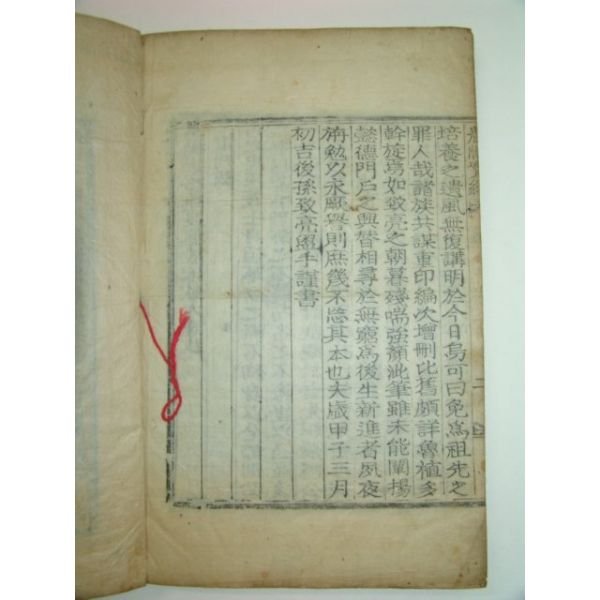 培養之遺風無復講明於今日烏可曰免爲祖先之
罪人哉諸族共謀重印編次增刪比舊頗詳魯植多
幹旋焉如致亮之朝暮殘喘強顔泚筆雖未能闡揚
懿德門戶之興替相尋於無窮爲後生新進者夙夜
勉以永厥譽則庶幾不忝其本也夫歲甲子三月
初吉後孫致亮盥手謹書
二